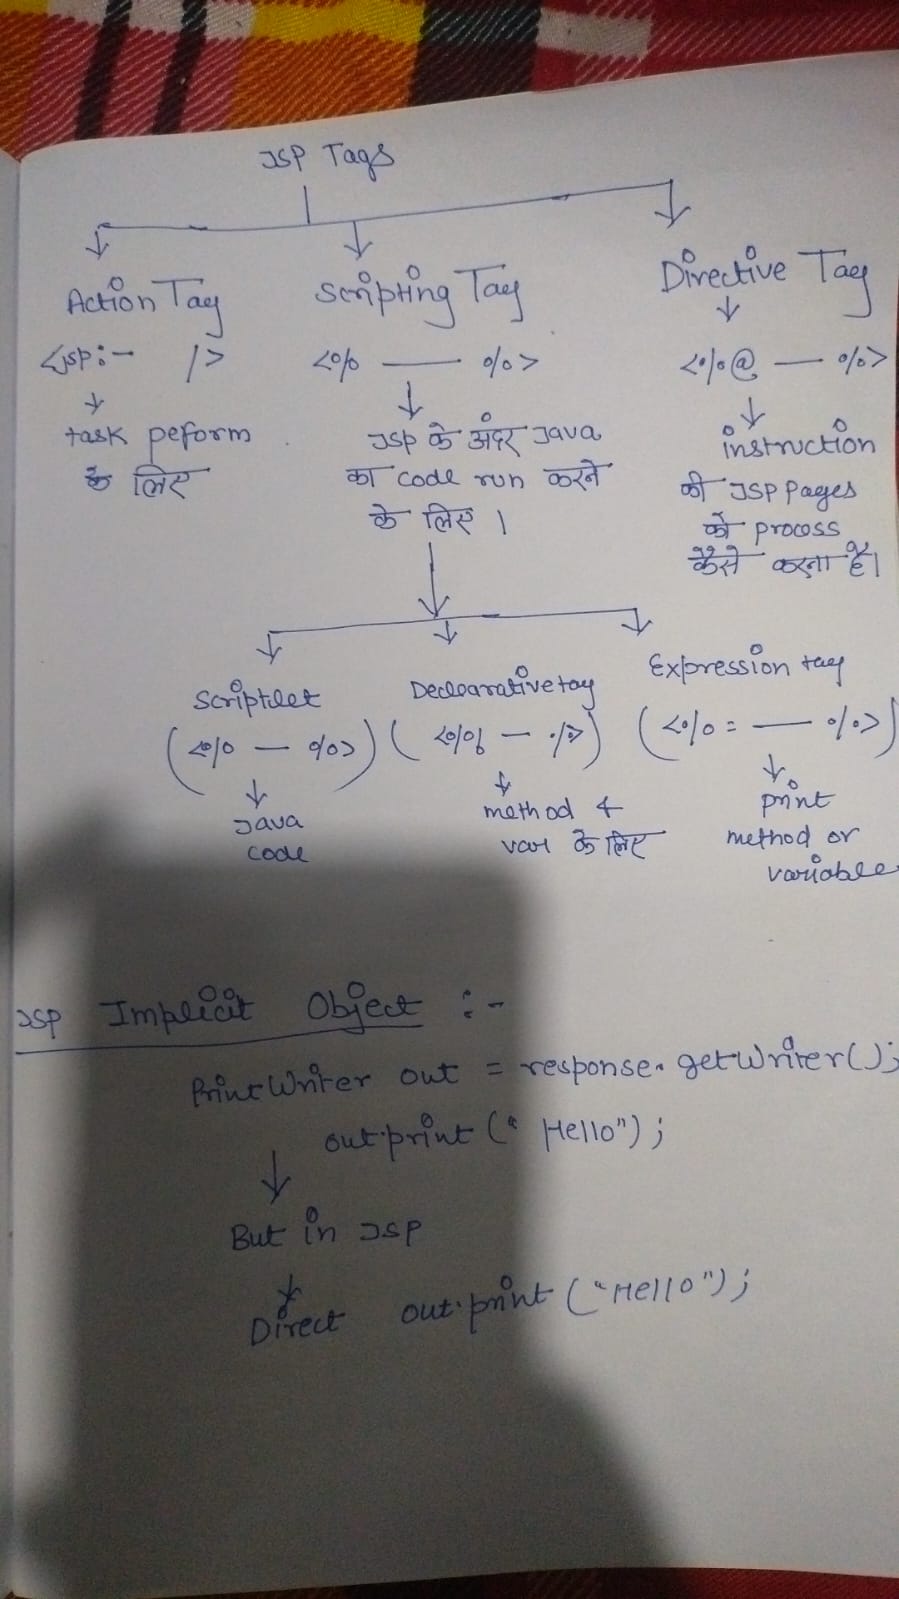 JSP Tags
Action Tag
<jsp:- />
task peform
के लिए
Scripting Tag
<% — %>
JSP के अंदर Java
का code run करने
के लिए ।
Directive Tag
<%@ — %>
instruction
की JSP Pages
को process
कैसे करना है।
Scriptlet
(<% — %>)
Java
code
Declearative tag
(<%! — %>)
method &
var के लिए
Expression tag
(<%= — %>)
print
method or
variable
JSP Implicit Object :-
PrintWriter out = response.getWriter();
out.print(" Hello");
But in JSP
Direct out.print("Hello");